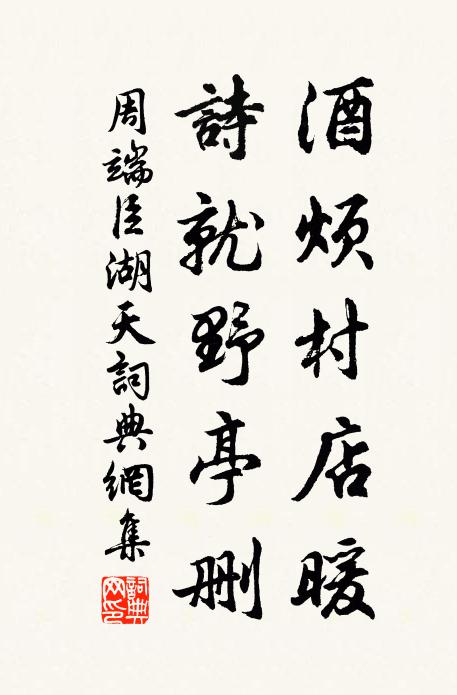 酒烦村店暖
詩就野亭刪
周端臣湖天詞典網集
詞典網印